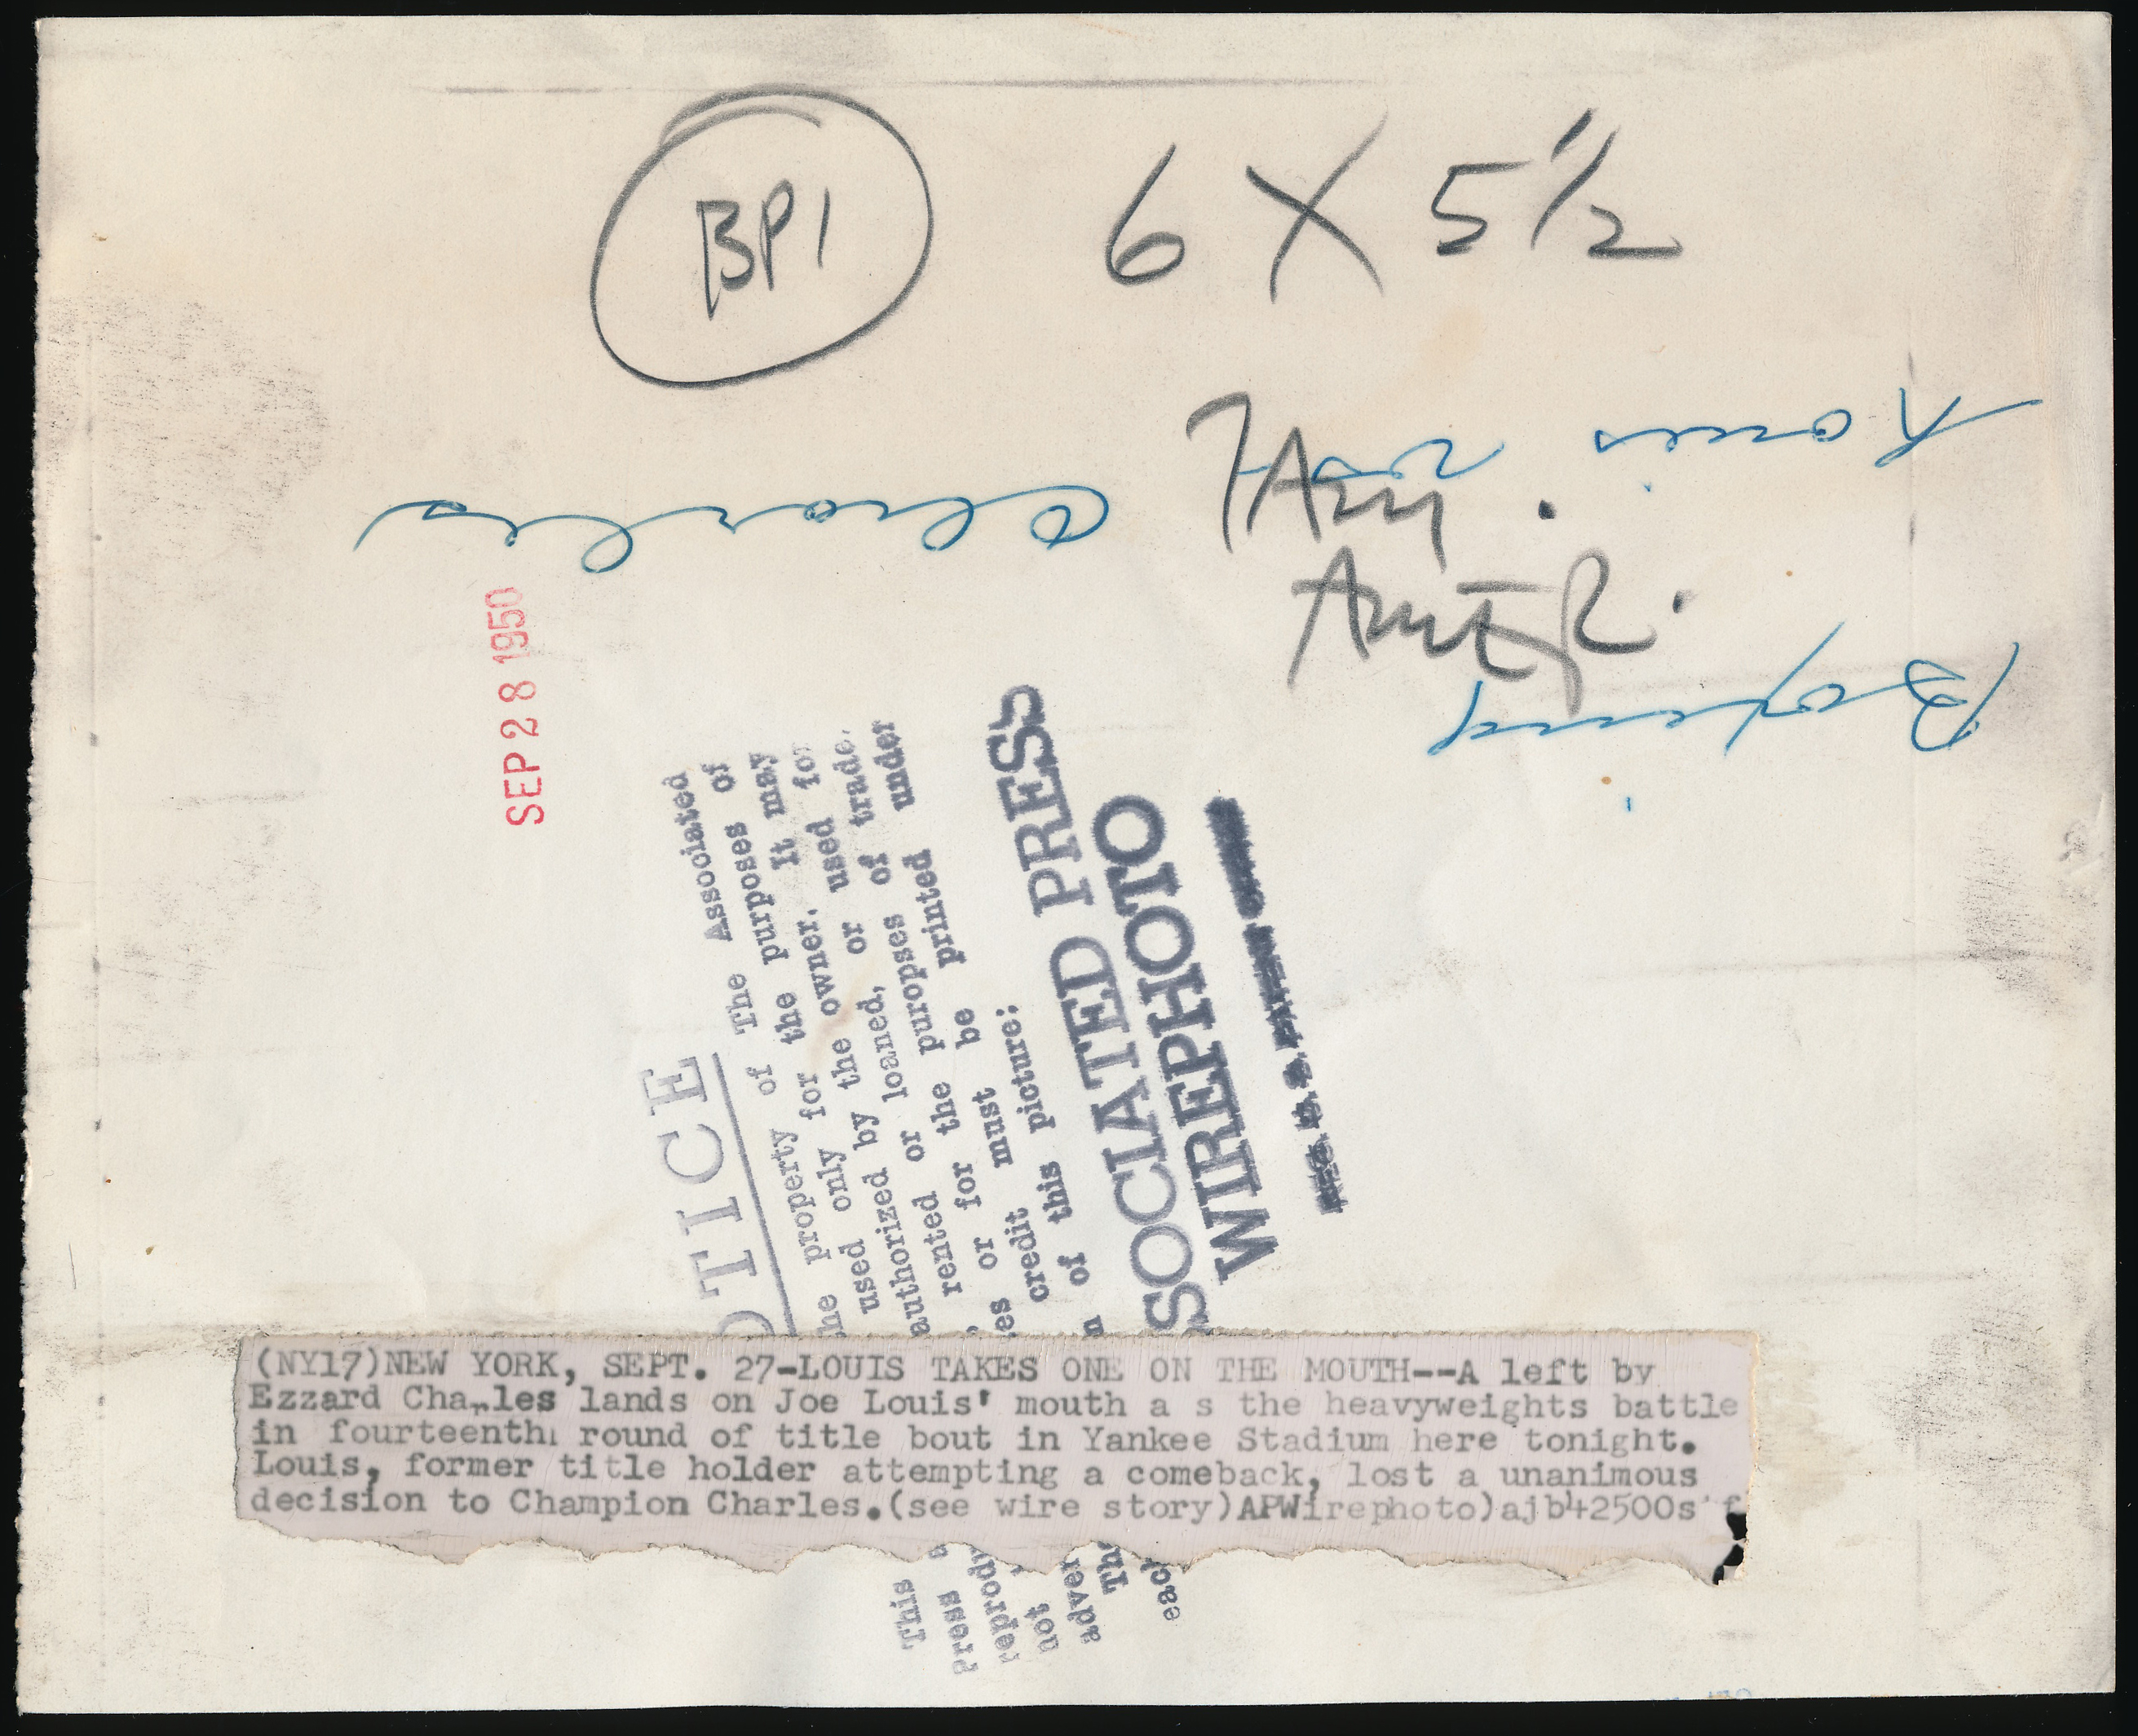 BP1
6 X 5 1/2
Louis
Charles
AMER.
Boxing
SEP 28 1950
OTICE
The Associated
the property of The purposes of
used only for the purposes It may
authorized by the owner. used for
rented or loaned, or used trade,
es or for the puropses of under
credit must be printed
n of this picture:
SOCIATED PRESS
WIREPHOTO
(NY17)NEW YORK, SEPT. 27-LOUIS TAKES ONE ON THE MOUTH--A left by
Ezzard Charles lands on Joe Louis' mouth a s the heavyweights battle
in fourteenth round of title bout in Yankee Stadium here tonight.
Louis, former title holder attempting a comeback, lost a unanimous
decision to Champion Charles.(see wire story)APWirephoto)ajb42500s f
This
Press a
reprodu
not
adver
The
each